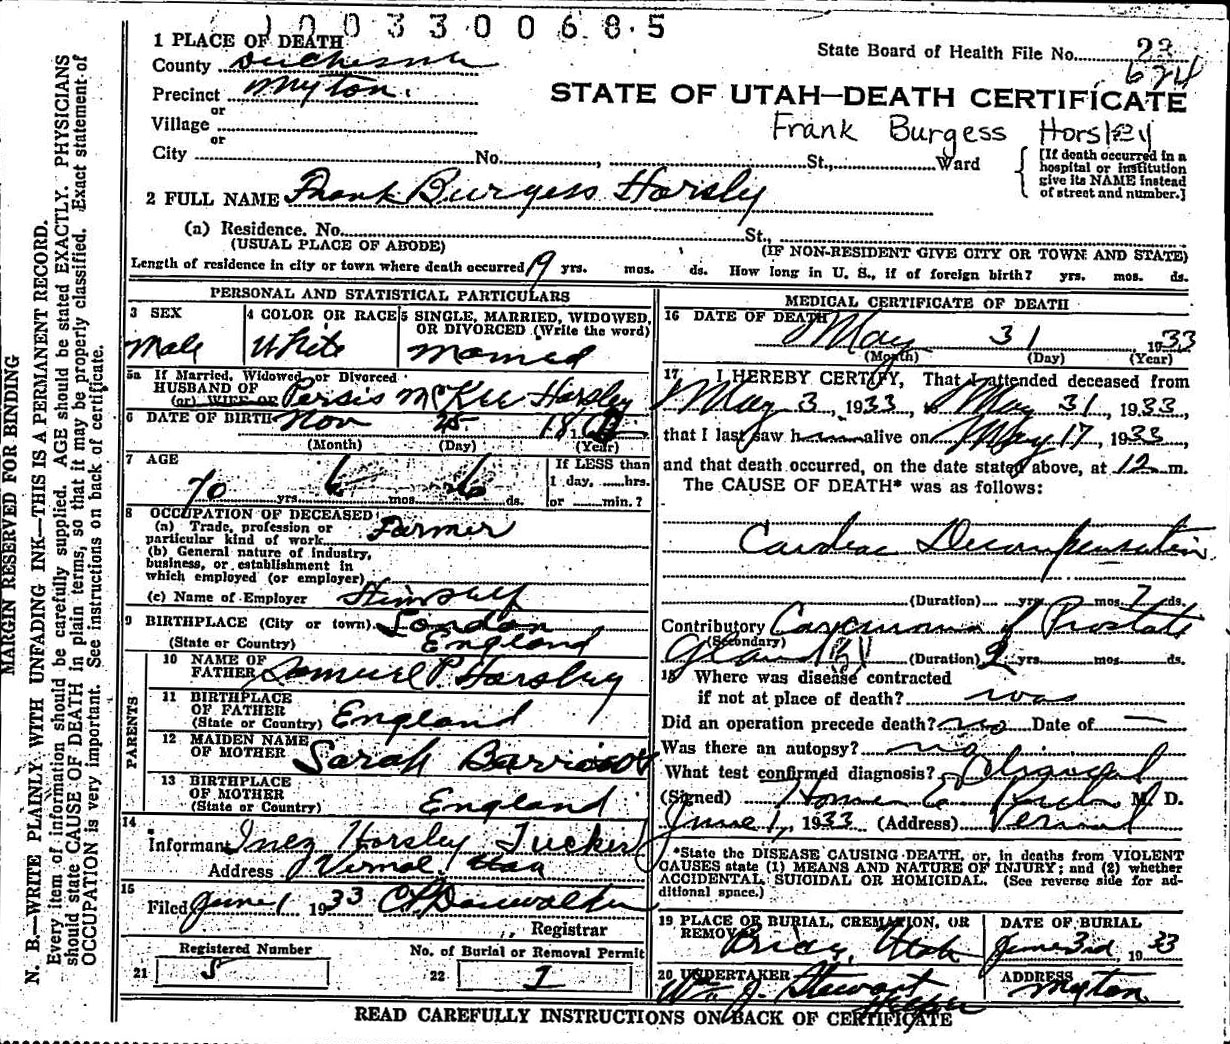 1003300685
1 PLACE OF DEATH
State Board of Health File No. 23
624
County Duchesne
Precinct Myton.
STATE OF UTAH—DEATH CERTIFICATE
or
Village
Frank Burgess Horsley
or
City No. , St., Ward
[If death occurred in a
hospital or institution
give its NAME instead
of street and number.]
2 FULL NAME Frank Burgess Horsley
(a) Residence. No. St.,
(USUAL PLACE OF ABODE) (IF NON-RESIDENT GIVE CITY OR TOWN AND STATE)
Length of residence in city or town where death occurred 19 yrs. mos. ds. How long in U. S., if of foreign birth? yrs. mos. ds.
PERSONAL AND STATISTICAL PARTICULARS
3 SEX
Male
4 COLOR OR RACE
White
5 SINGLE, MARRIED, WIDOWED,
OR DIVORCED (Write the word)
Married
5a If Married, Widowed or Divorced
HUSBAND OF
(or) WIFE OF Persis McKee Horsley
6 DATE OF BIRTH Nov 25 18
(Month) (Day) (Year)
7 AGE
70 yrs. 6 mos. 6 ds.
If LESS than
1 day, ......hrs.
or ......min.?
8 OCCUPATION OF DECEASED
(a) Trade, profession or
particular kind of work Farmer
(b) General nature of industry,
business, or establishment in
which employed (or employer)
(c) Name of Employer Himself
9 BIRTHPLACE (City or town) London
(State or Country) England
PARENTS
10 NAME OF
FATHER Samuel P. Horsley
11 BIRTHPLACE
OF FATHER
(State or Country) England
12 MAIDEN NAME
OF MOTHER Sarah Barrows
13 BIRTHPLACE
OF MOTHER
(State or Country) England
14
Informant Inez Horsley Tucker
Address Vernal Utah
15
Filed June 1 1933
Registrar
Registered Number
21 5
No. of Burial or Removal Permit
22 1
MEDICAL CERTIFICATE OF DEATH
16 DATE OF DEATH
May 31 1933
(Month) (Day) (Year)
17 I HEREBY CERTIFY, That I attended deceased from
May 3, 1933, to May 31, 1933,
that I last saw him alive on May 17, 1933,
and that death occurred, on the date stated above, at 12 m.
The CAUSE OF DEATH* was as follows:
Cardiac Decompensation
(Duration) yrs. mos. 7 ds.
Contributory Carcinoma of Prostate
(Secondary)
Gland (Duration) 2 yrs. mos. ds.
18 Where was disease contracted
if not at place of death? was
Did an operation precede death? no Date of —
Was there an autopsy? no
What test confirmed diagnosis? Clinical
(Signed) Homer E. M. D.
June 1, 1933 (Address) Vernal
*State the DISEASE CAUSING DEATH, or, in deaths from VIOLENT
CAUSES state (1) MEANS AND NATURE OF INJURY; and (2) whether
ACCIDENTAL SUICIDAL OR HOMICIDAL. (See reverse side for ad-
ditional space.)
19 PLACE OF BURIAL, CREMATION, OR
REMOVAL
Utah
DATE OF BURIAL
June 3rd, 1933
20 UNDERTAKER
Wm J. Stewart
ADDRESS
Myton.
READ CAREFULLY INSTRUCTIONS ON BACK OF CERTIFICATE
MARGIN RESERVED FOR BINDING
N. B.—WRITE PLAINLY WITH UNFADING INK—THIS IS A PERMANENT RECORD.
Every item of information should be carefully supplied. AGE should be stated EXACTLY. PHYSICIANS
should state CAUSE OF DEATH in plain terms, so that it may be properly classified. Exact statement of
OCCUPATION is very important. See instructions on back of certificate.